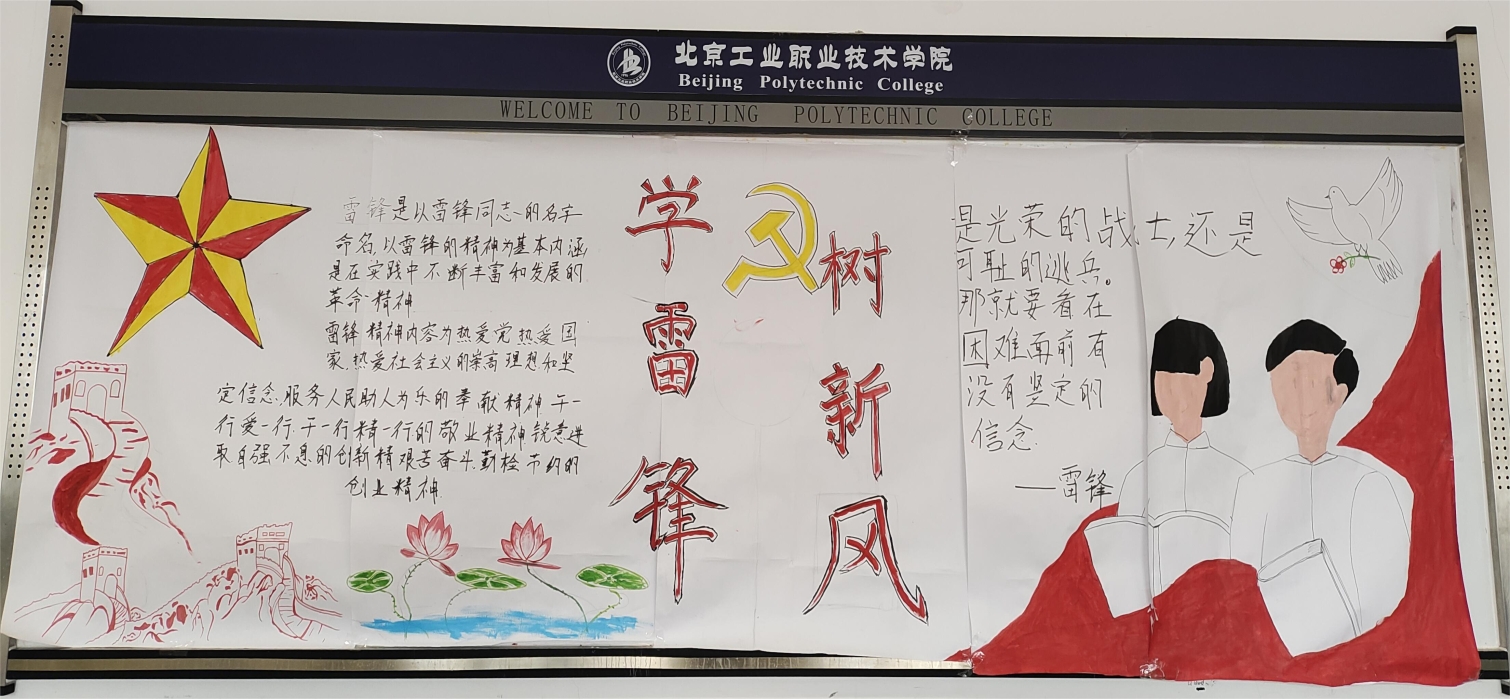 北京工业职业技术学院
Beijing Polytechnic College
WELCOME TO BEIJING POLYTECHNIC COLLEGE
雷锋是以雷锋同志的名字
命名,以雷锋的精神为基本内涵
是在实践中不断丰富和发展的
革命精神
雷锋精神内容为热爱党热爱国
家.热爱社会主义的崇高理想和坚
定信念.服务人民助人为乐的奉献精神干一
行爱一行.干一行精一行的敬业精神锐意进
取自强不息的创新精艰苦奋斗.勤检节约的
创业精神.
学雷锋
树新风
是光荣的战士,还是
可耻的逃兵。
那就要看在
困难面前有
没有坚定的
信念.
—雷锋